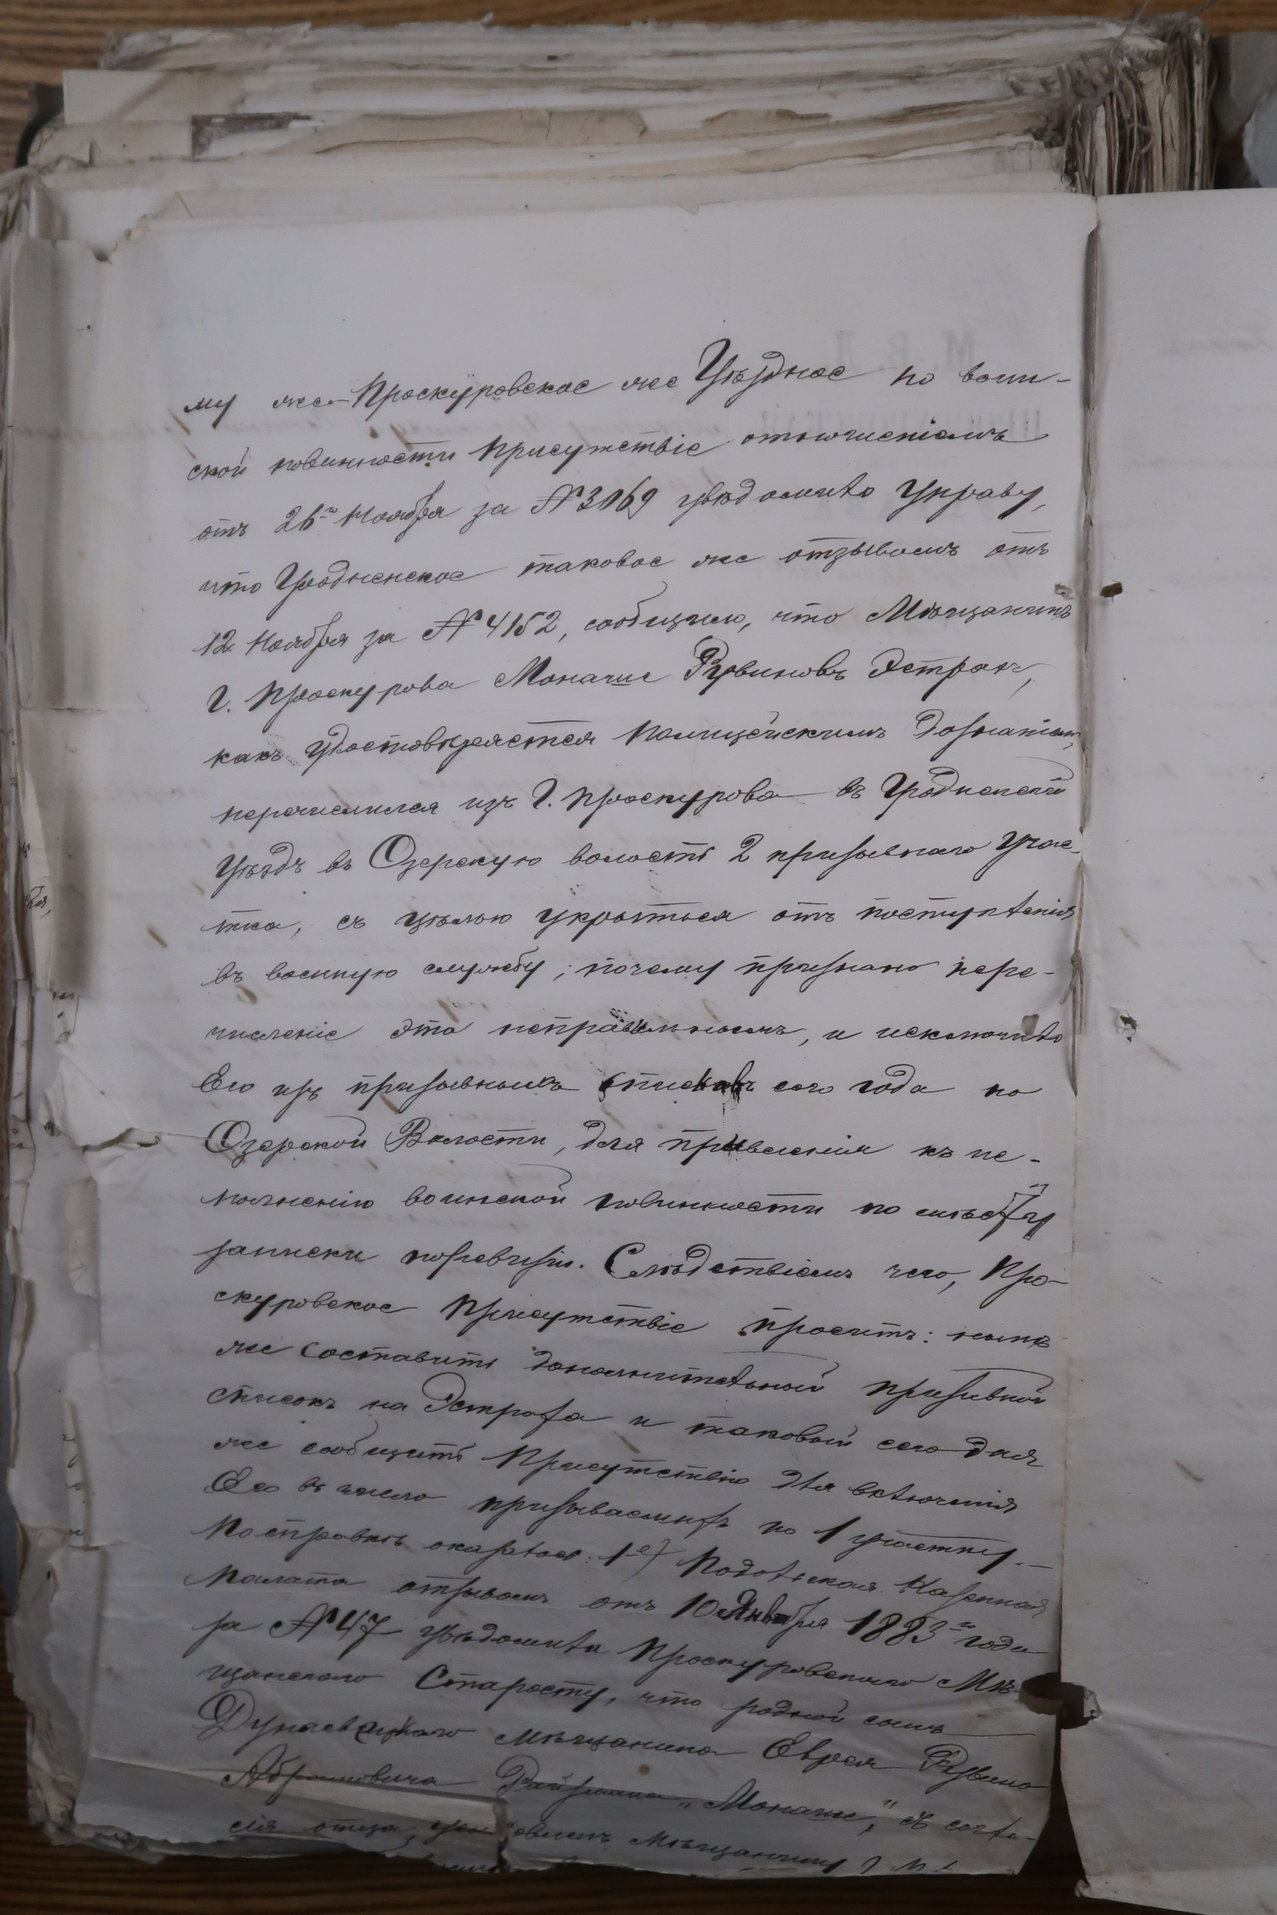 му же Проскуровское же Уѣздное по воин-
ской повинности Присутствіе отношеніемъ
отъ 26го Ноября за №3069 увѣдомило Управу,
что Гродненское таковое же отзывомъ отъ
12 Ноября за №4152, сообщило, что Мѣщанинъ
г. Проскурова Монашe Рувиновъ Эстрахъ,
какъ удостовѣряется Полицейскимъ дознаніемъ,
перечислился изъ г. Проскурова въ Гродненскій
уѣздъ въ Озерскую волость 2 призывнаго учас-
тка, съ цѣлью укрыться отъ поступленія
въ военную службу, почему признано пере-
численіе это неправильнымъ, и исключило
Его изъ призывныхъ списковъ сего года по
Озерской Волости, для привлеченія къ ис-
полненію воинской повинности по мѣсту
записки по ревизіи. Слѣдствіемъ чего, Про-
скуровское Присутствіе проситъ: нынѣ
же составить дополнительный призывной
списокъ на Эстраха и таковый сего дня
же сообщить Присутствію для включенія
Его въ число призываемыхъ по 1 участку.—
По справкѣ оказалось: 1е) Подольская Казенная
Палата отзывомъ отъ 10 Января 1883го года
за №47 увѣдомила Проскуровскаго Мѣ-
щанскаго Старосту, что родной сынъ
Дунаевецкаго мѣщанина Еврея Рувина
Абрамовича Райзмана „Монаше", съ согла-
сія отца, мѣщанину